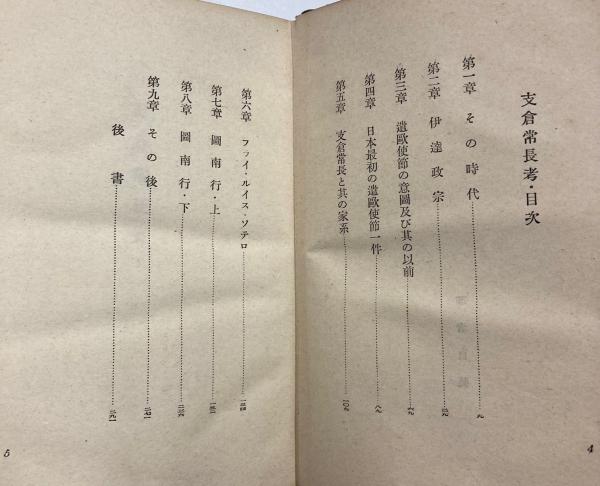 支倉常長考・目次
第一章 その時代 九
第二章 伊達政宗
第三章 遣歐使節の意圖及び其の以前
第四章 日本最初の遣歐使節一件
第五章 支倉常長と其の家系 一〇九
4
第六章 フライ・ルイス・ソテロ
第七章 圖南行・上
第八章 圖南行・下
第九章 その後
後書
5